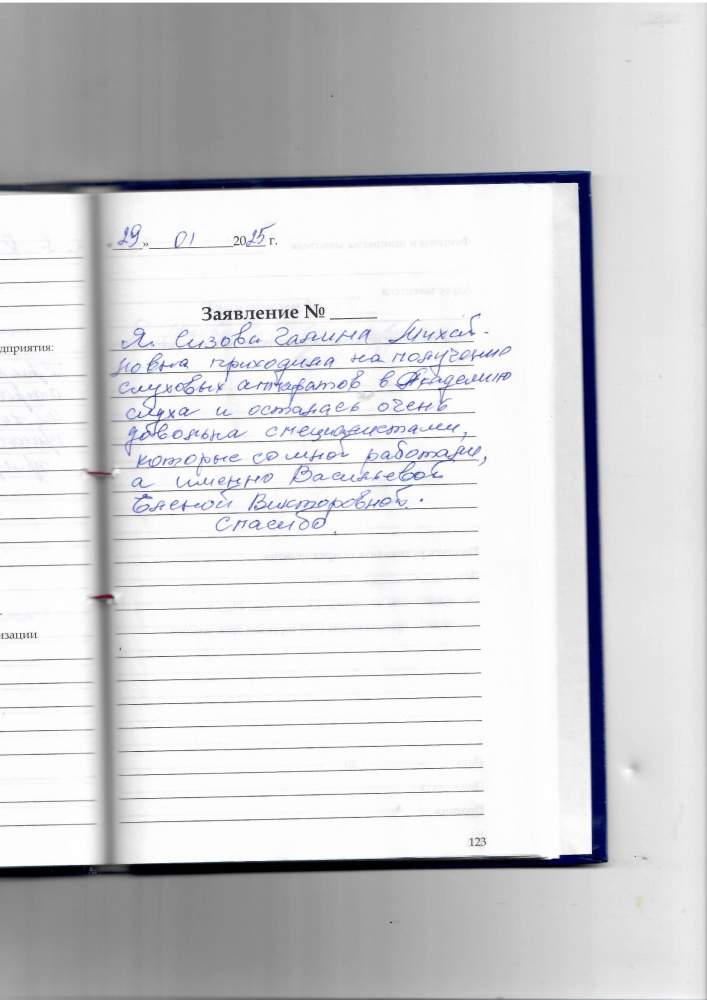 «29» 01 2025 г.
Заявление № ____
Я. Сизова Галина Михай-
ловна приходила на получение
слуховых аппаратов в Академию
слуха и осталась очень
довольна специалистами,
которые со мной работали,
а именно Васильевой
Еленой Викторовной.
Спасибо.
дприятия:
изации
123